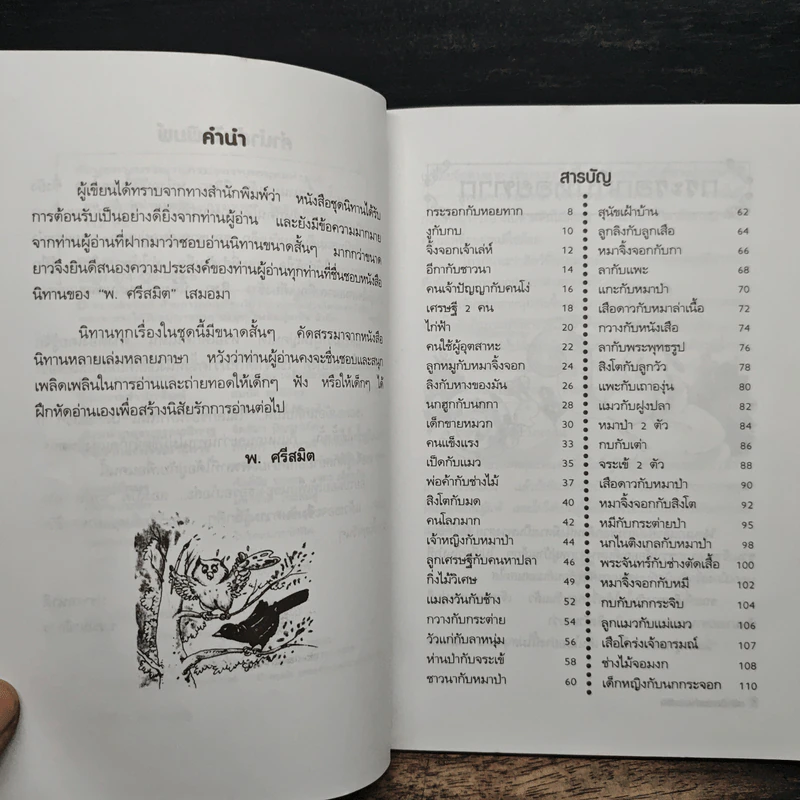 คำนำ
ผู้เขียนได้ทราบจากทางสำนักพิมพ์ว่า หนังสือชุดนิทานได้รับ
การต้อนรับเป็นอย่างดียิ่งจากท่านผู้อ่าน และยังมีข้อความมากมาย
จากท่านผู้อ่านที่ฝากมาว่าชอบอ่านนิทานขนาดสั้นๆ มากกว่าขนาด
ยาวจึงยินดีสนองความประสงค์ของท่านผู้อ่านทุกท่านที่ชื่นชอบหนังสือ
นิทานของ "พ. ศรีสมิต" เสมอมา
นิทานทุกเรื่องในชุดนี้มีขนาดสั้นๆ คัดสรรมาจากหนังสือ
นิทานหลายเล่มหลายภาษา หวังว่าท่านผู้อ่านคงจะชื่นชอบและสนุก
เพลิดเพลินในการอ่านและถ่ายทอดให้เด็กๆ ฟัง หรือให้เด็กๆ ได้
ฝึกหัดอ่านเองเพื่อสร้างนิสัยรักการอ่านต่อไป
พ. ศรีสมิต
สารบัญ
กระรอกกับหอยทาก 8
งูกับกบ 10
จิ้งจอกเจ้าเล่ห์ 12
อีกากับชาวนา 14
คนเจ้าปัญญากับคนโง่ 16
เศรษฐี 2 คน 18
ไก่ฟ้า 20
คนใช้ผู้อุตสาหะ 22
ลูกหมูกับหมาจิ้งจอก 24
ลิงกับหางของมัน 26
นกฮูกกับนกกา 28
เด็กขายหมวก 30
คนแข็งแรง 33
เป็ดกับแมว 35
พ่อค้ากับช่างไม้ 37
สิงโตกับมด 40
คนโลภมาก 42
เจ้าหญิงกับหมาป่า 44
ลูกเศรษฐีกับคนหาปลา 46
กิ่งไม้วิเศษ 49
แมลงวันกับช้าง 52
กวางกับกระต่าย 54
วัวแก่กับลาหนุ่ม 56
ห่านป่ากับจระเข้ 58
ชาวนากับหมาป่า 60
สุนัขเฝ้าบ้าน 62
ลูกลิงกับลูกเสือ 64
หมาจิ้งจอกกับกา 66
ลากับแพะ 68
แกะกับหมาป่า 70
เสือดาวกับหมาล่าเนื้อ 72
กวางกับหนังเสือ 74
ลากับพระพุทธรูป 76
สิงโตกับลูกวัว 78
แพะกับเถาองุ่น 80
แมวกับฝูงปลา 82
หมาป่า 2 ตัว 84
กบกับเต่า 86
จระเข้ 2 ตัว 88
เสือดาวกับหมาป่า 90
หมาจิ้งจอกกับสิงโต 92
หมีกับกระต่ายป่า 95
นกไนติงเกลกับหมาป่า 98
พระจันทร์กับช่างตัดเสื้อ 100
หมาจิ้งจอกกับหมี 102
กบกับนกกระจิบ 104
ลูกแมวกับแม่แมว 106
เสือโคร่งเจ้าอารมณ์ 107
ช่างไม้จอมงก 108
เด็กหญิงกับนกกระจอก 110